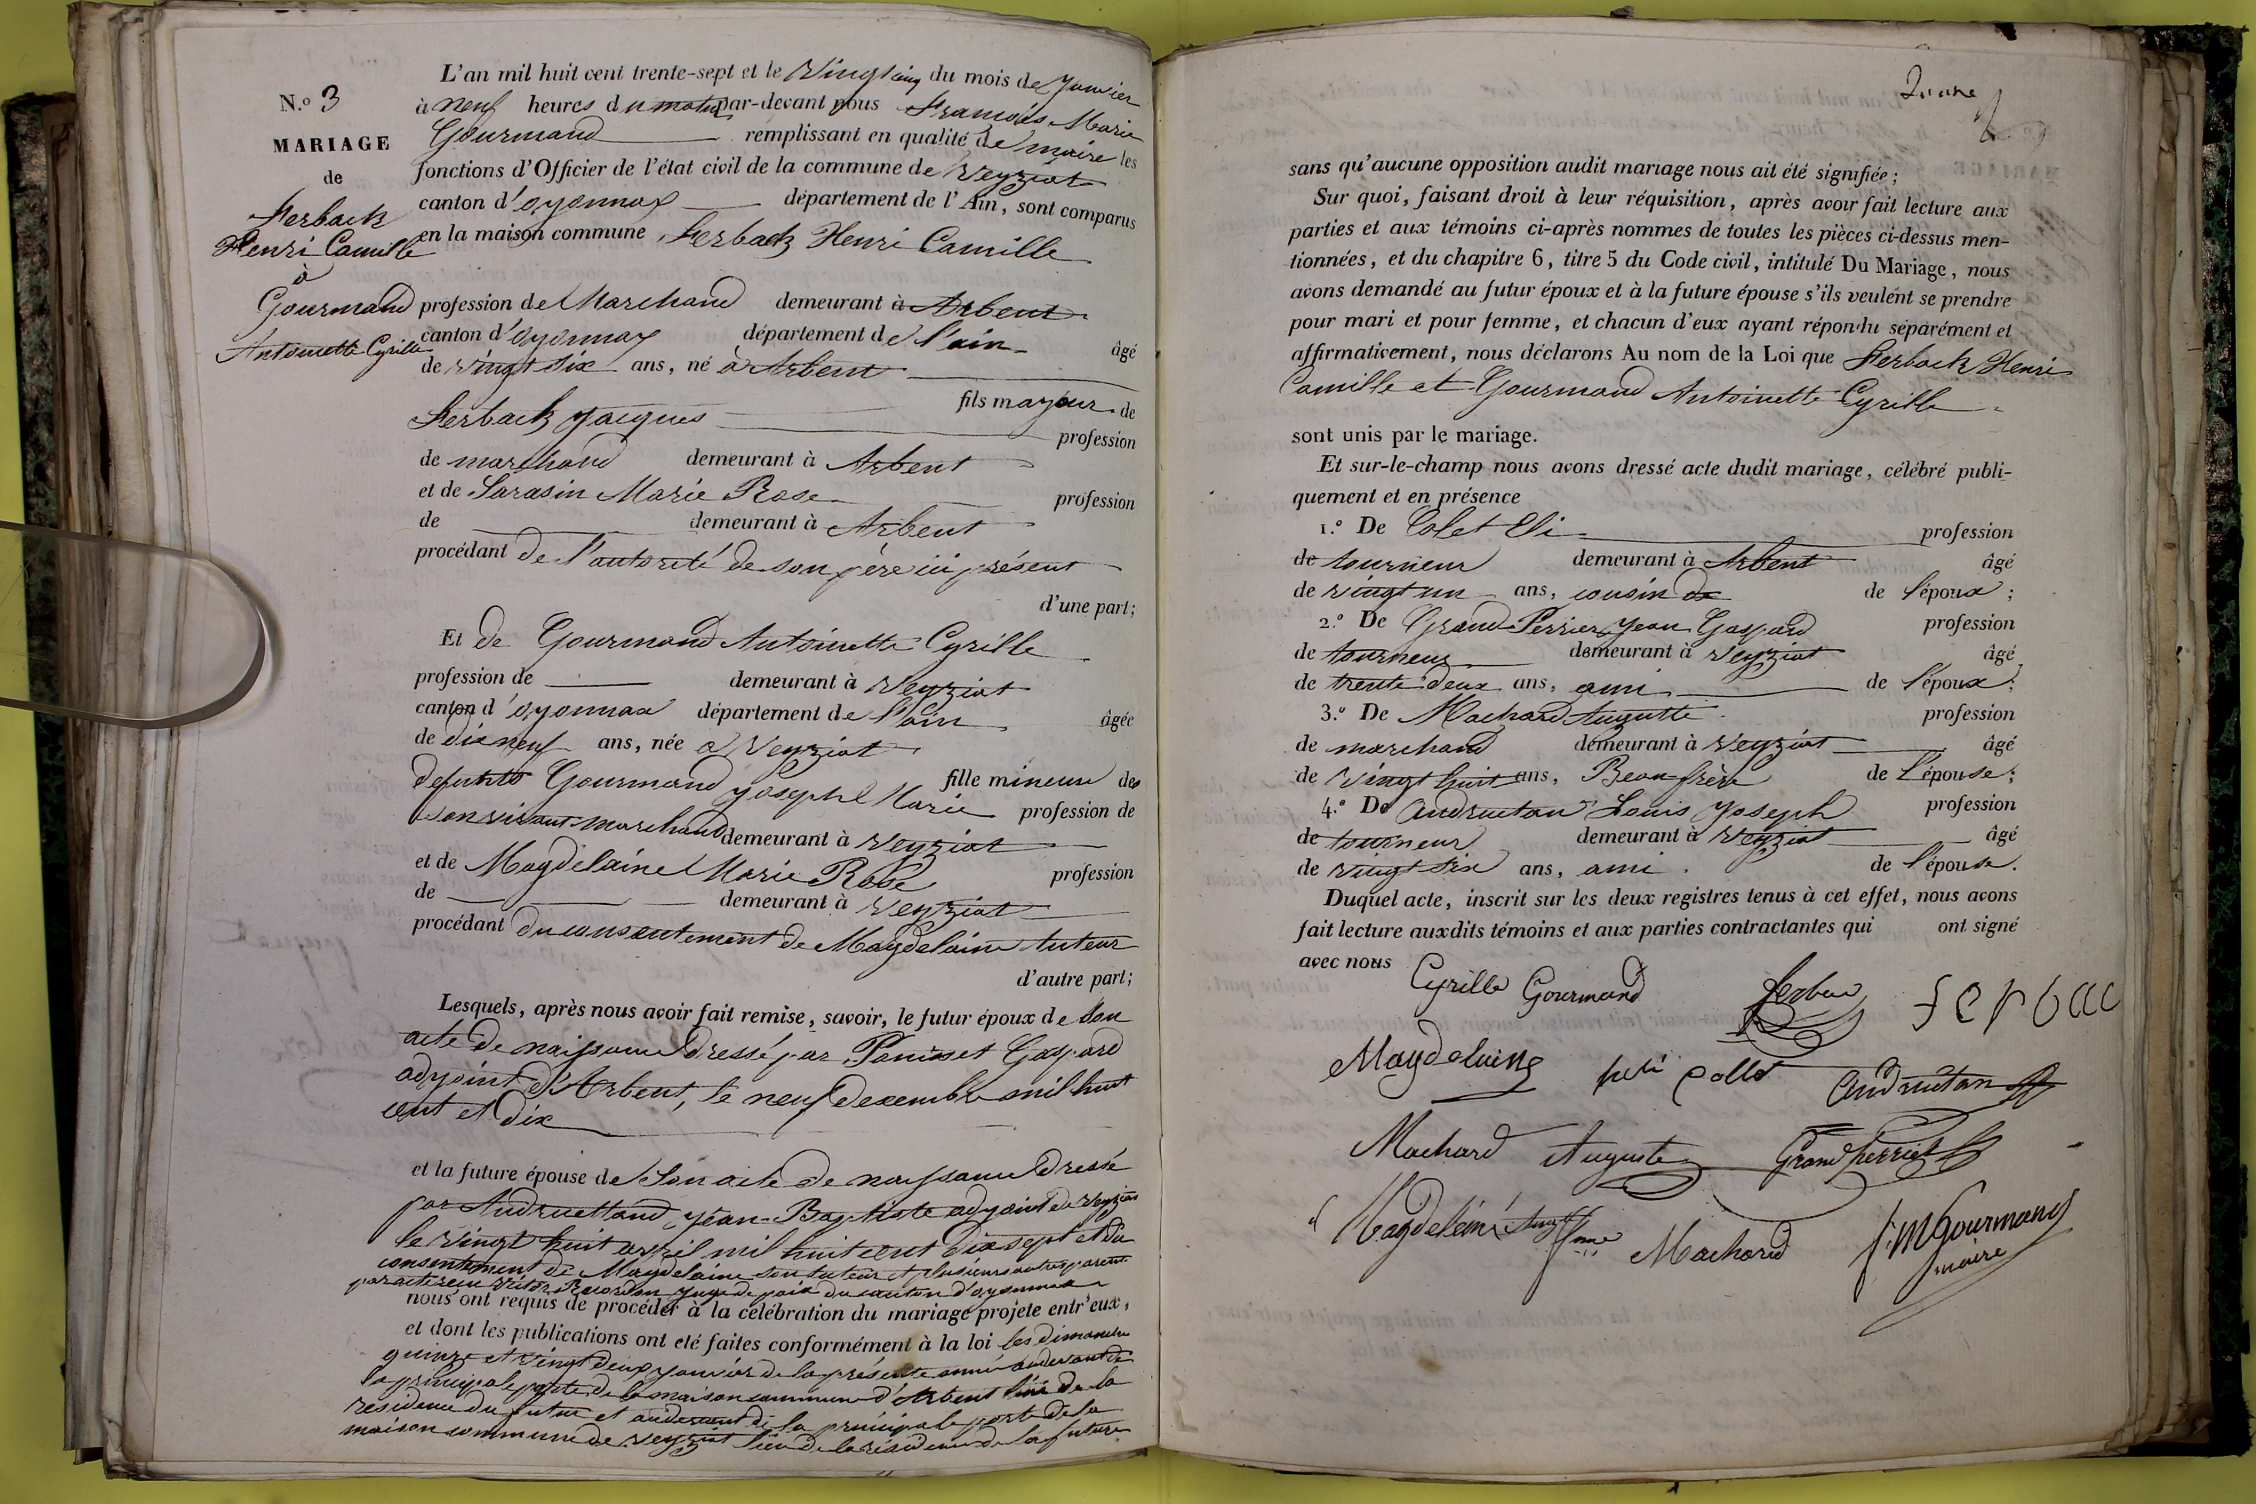 N.º 3
MARIAGE
de
Ferback
Henri Camille
à
Gourmand
Antoinette Cyrille
L'an mil huit cent trente-sept et le Vingt cinq du mois de Janvier
à neuf heures du matin par-devant nous François Marie
Gourmand remplissant en qualité de maire les
fonctions d'Officier de l'état civil de la commune de Veyziat
canton d'oyonnax département de l'Ain, sont comparus
en la maison commune, Ferback Henri Camille
profession de Marchand demeurant à Arbent
canton d'oyonnax département de l'ain âgé
de vingt six ans, né à Arbent
fils mayeur de
Ferback Jacques profession
de marchand demeurant à Arbent
et de Sarasin Marie Rose profession
de demeurant à Arbent
procédant de l'autorité de son père ici présent
d'une part;
Et de Gourmand Antoinette Cyrille
profession de demeurant à Veyziat
canton d'oyonnax département de l'ain âgée
de dix neuf ans, née à Veyziat
fille mineure de
defunts Gourmand Joseph Marie profession de
son vivant marchand demeurant à Veyziat
et de Magdelaine Marie Rose profession
de demeurant à Veyziat
procédant du consentement de Magdelaine tuteur
d'autre part;
Lesquels, après nous avoir fait remise, savoir, le futur époux de son
acte de naissance dressé par Panisset Gaspard
adjoint d'Arbent, le neuf decembre mil huit
cent et dix
et la future épouse de son acte de naissance dressé
par Andruettand Jean-Baptiste adjoint de Veyziat
le vingt huit avril mil huit cent dix sept et du
consentement de Magdelaine son tuteur et plusieurs autres parents
par acte reçu juge de paix du canton d'oyonnax
nous ont requis de procéder à la célébration du mariage projeté entr'eux,
et dont les publications ont été faites conformément à la loi les dimanche
quinze et vingt deux janvier de la présente année audevant de
la principale porte de la maison commune d'Arbent lieu de la
résidence du futur et audevant de la principale porte de la
maison commune de Veyziat lieu de la résidence de la future
sans qu'aucune opposition audit mariage nous ait été signifiée;
Sur quoi, faisant droit à leur réquisition, après avoir fait lecture aux
parties et aux témoins ci-après nommes de toutes les pièces ci-dessus men-
tionnées, et du chapitre 6, titre 5 du Code civil, intitulé Du Mariage, nous
avons demandé au futur époux et à la future épouse s'ils veulent se prendre
pour mari et pour femme, et chacun d'eux ayant répondu séparément et
affirmativement, nous déclarons Au nom de la Loi que Ferback Henri
Camille et Gourmand Antoinette Cyrille
sont unis par le mariage.
Et sur-le-champ nous avons dressé acte dudit mariage, célébré publi-
quement et en présence
1.º De Colet Eli profession
de tourneur demeurant à Arbent âgé
de vingt un ans, cousin de l'époux;
2.º De Grand-Perrier Jean Gaspard profession
de tourneur demeurant à Veyziat âgé
de trente deux ans, ami de l'époux;
3.º De Machard Auguste profession
de marchand demeurant à Veyziat âgé
de vingt huit ans, Beau frère de l'épouse;
4.º De Andruetan Louis Joseph profession
de tourneur demeurant à Veyziat âgé
de vingt six ans, ami de l'épouse.
Duquel acte, inscrit sur les deux registres tenus à cet effet, nous avons
fait lecture auxdits témoins et aux parties contractantes qui ont signé
avec nous
Cyrille Gourmand Ferbac ferbac
Magdelaine Collet Andruétan
Machard Auguste Grand perrier
Magdeleine Machard f.M Gourmand
maire